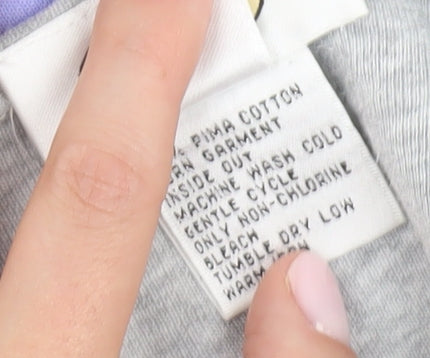 % PIMA COTTON
RN GARMENT
INSIDE OUT
MACHINE WASH COLD
GENTLE CYCLE
ONLY NON-CHLORINE
BLEACH
TUMBLE DRY LOW
WARM IRON